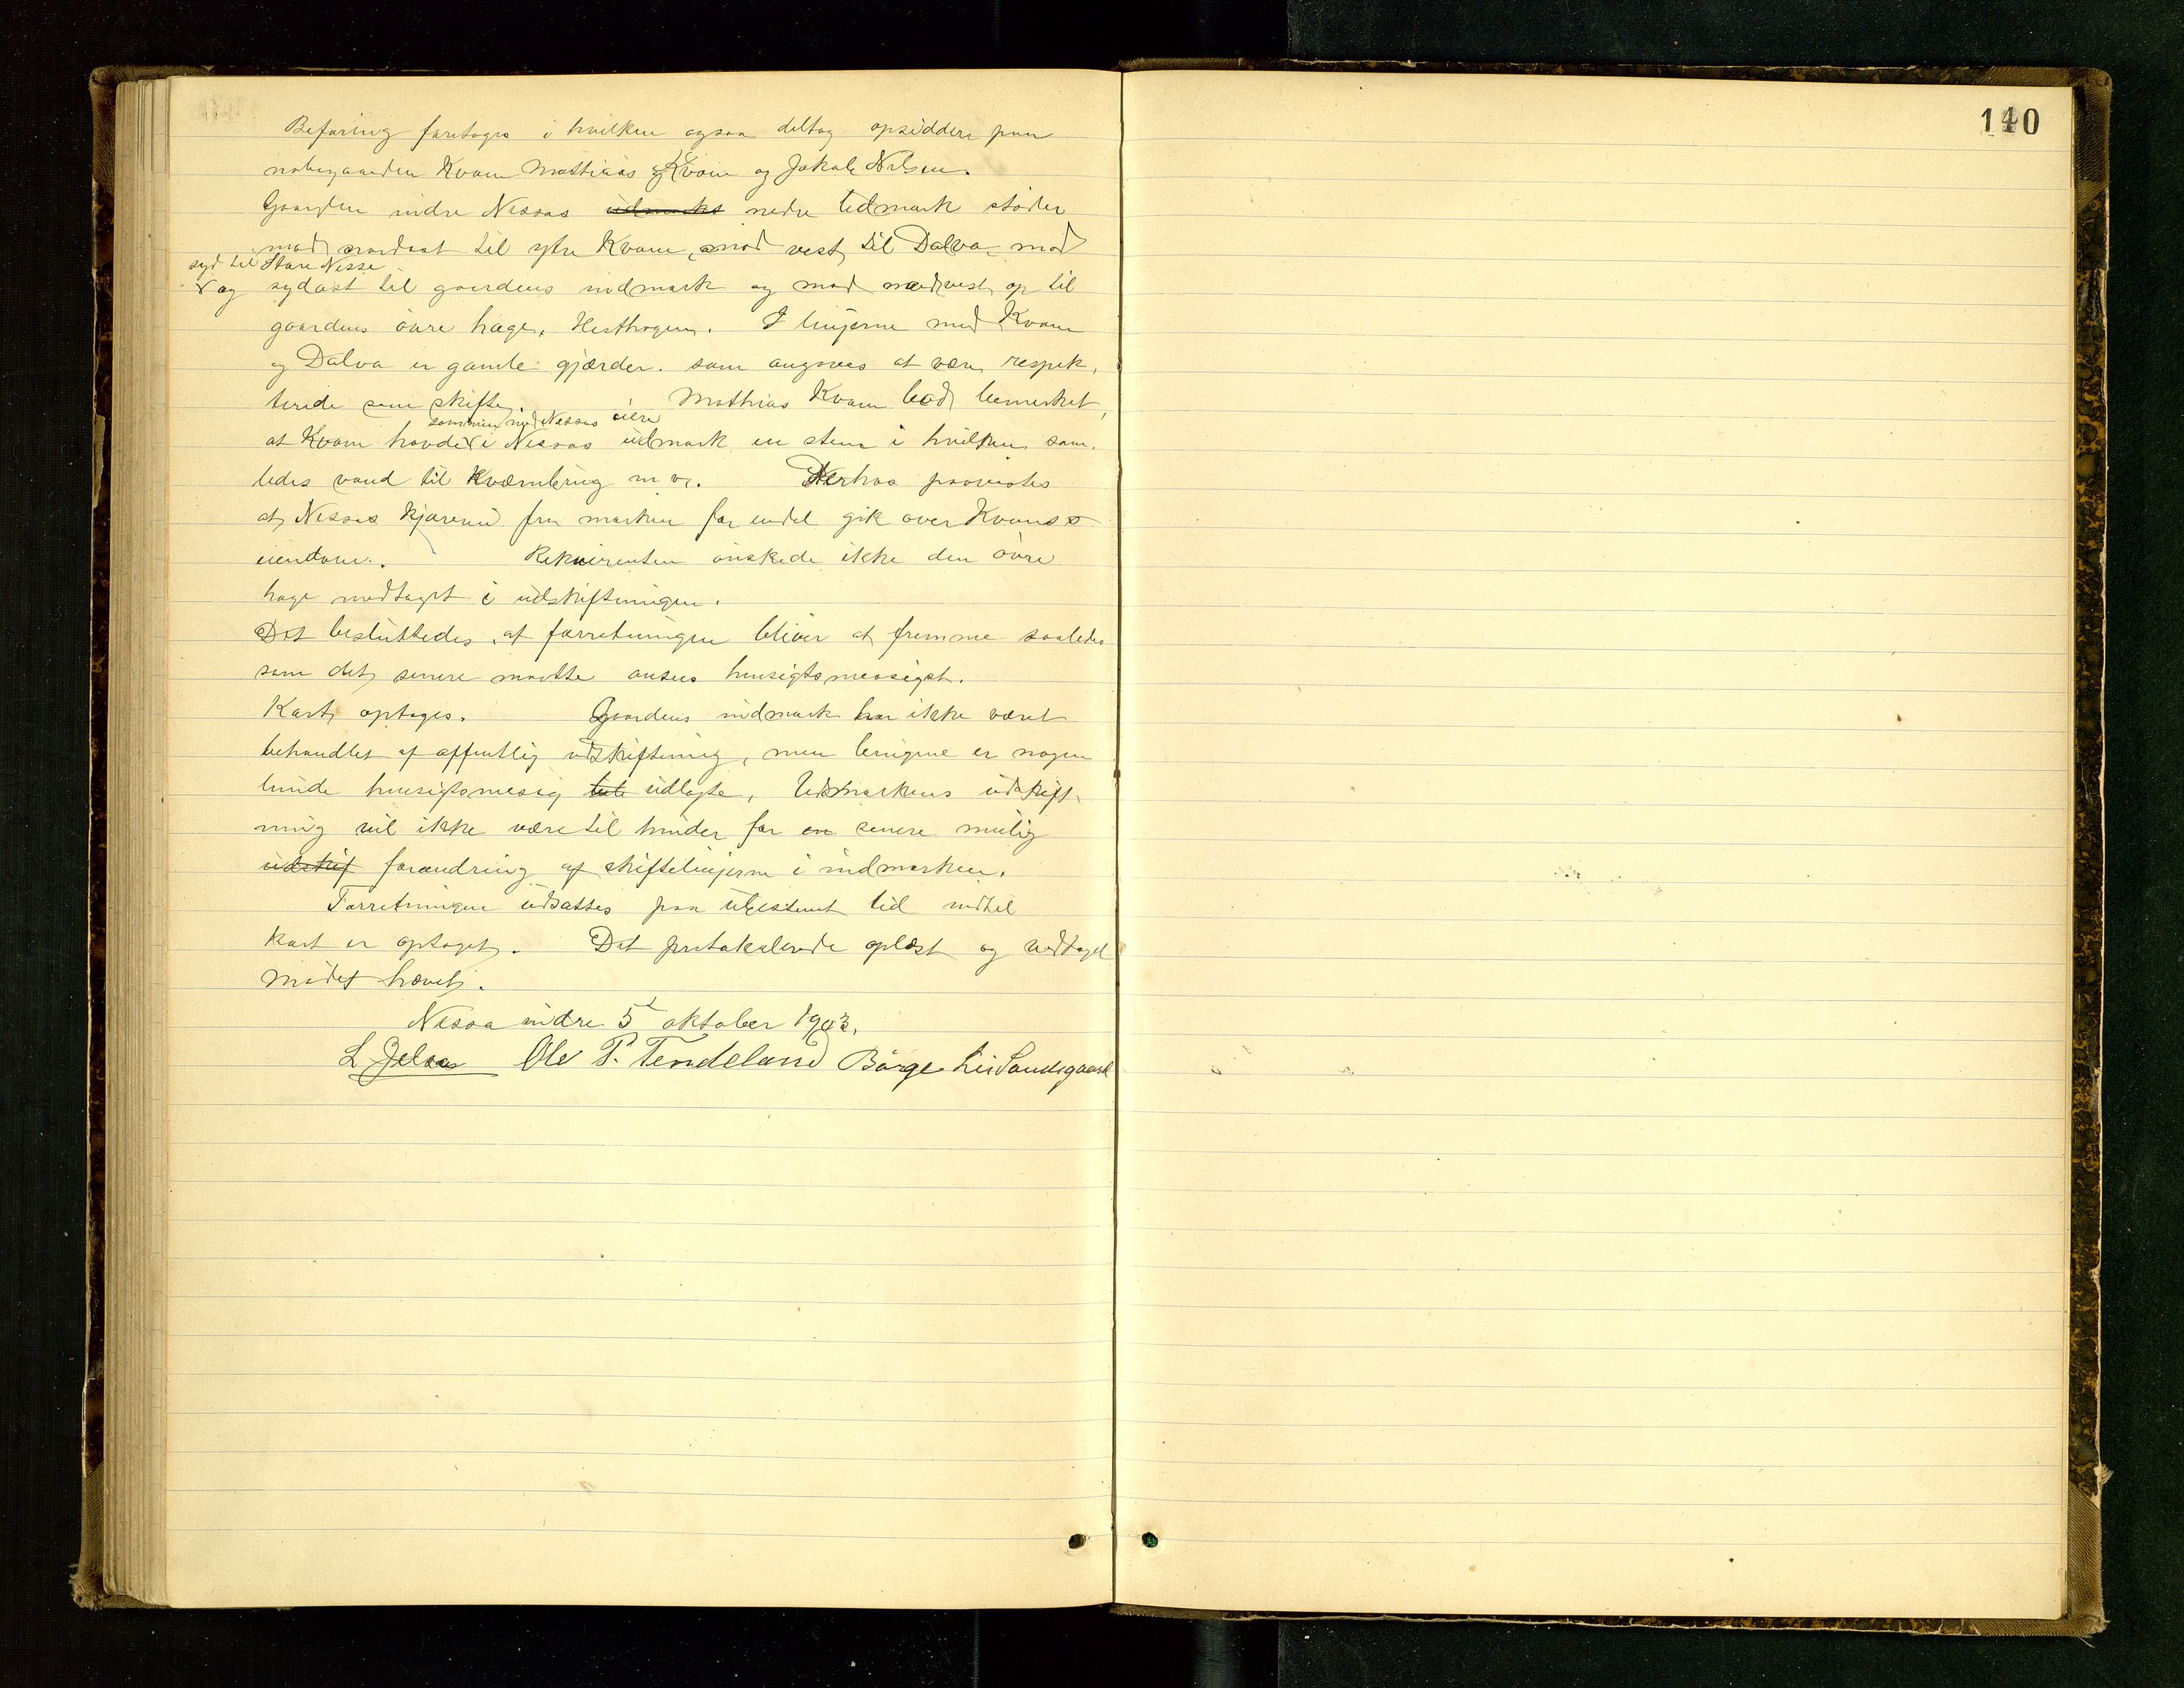 140
Befaring foretoges i hvilken ogsaa deltog opsiddere paa
nabogaarden Kvam Mathias Kvam og Jakob Nilsen.
Gaarden indre Nessas udmarks nedre Udmark støder
mod nordost til ytre Kvam, mod vest til Dalva mod
syd til Store Nesse
og sydost til gaardens indmark og mod nordvest op til
gaardens övre hage, Hesthagen. I linjerne med Kvam
og Dalva er gamle gjærder som angives at være respek,
terede som skifte. Mathias Kvam bad bemerket,
sammen med Nessas eiere
at Kvam havde i Nessas udmark en stem i hvilken sam.
ledes vand til Kværnbrug m.v. Derhos paavistes
at Nessas kjørevei fra marken for endel gik over Kvams
eiendom. Rekvirenten önskede ikke den övre
hage medtaget i udskiftningen.
Det besluttedes, at forretningen bliver at fremme saaledes
som det senere maatte ansees hensigtsmessigst.
Kart optages. Gaardens indmark har ikke været
behandlet af offentlig udskiftning, men teigene er nogen
lunde hensigtsmesig udlagte, Udmarkens udskift
ning vil ikke være til hinder for en senere mulig
udskif forandring af skiftelinjerne i indmarken.
Forretningen udsattes paa ubestemt tid indtil
kart er optaget. Det protokolerede oplæst og vedtaget
mödet hævet.
Nessa indre 5 oktober 1903.
L Jelsa Ole P. Tendeland Börge Lei Sandsgaard